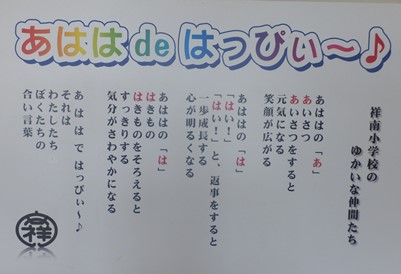 あはは de はっぴぃ～♪
祥南小学校の
ゆかいな仲間たち
あははの「あ」
あいさつ
あいさつをすると
元気になる
笑顔が広がる
あははの「は」
「はい！」
「はい！」と、返事をすると
一歩成長する
心が明るくなる
あははの「は」
はきもの
はきものをそろえると
すっきりする
気分がさわやかになる
あ は は で はっぴぃ～♪
それは
わたしたち
ぼくたちの
合い言葉